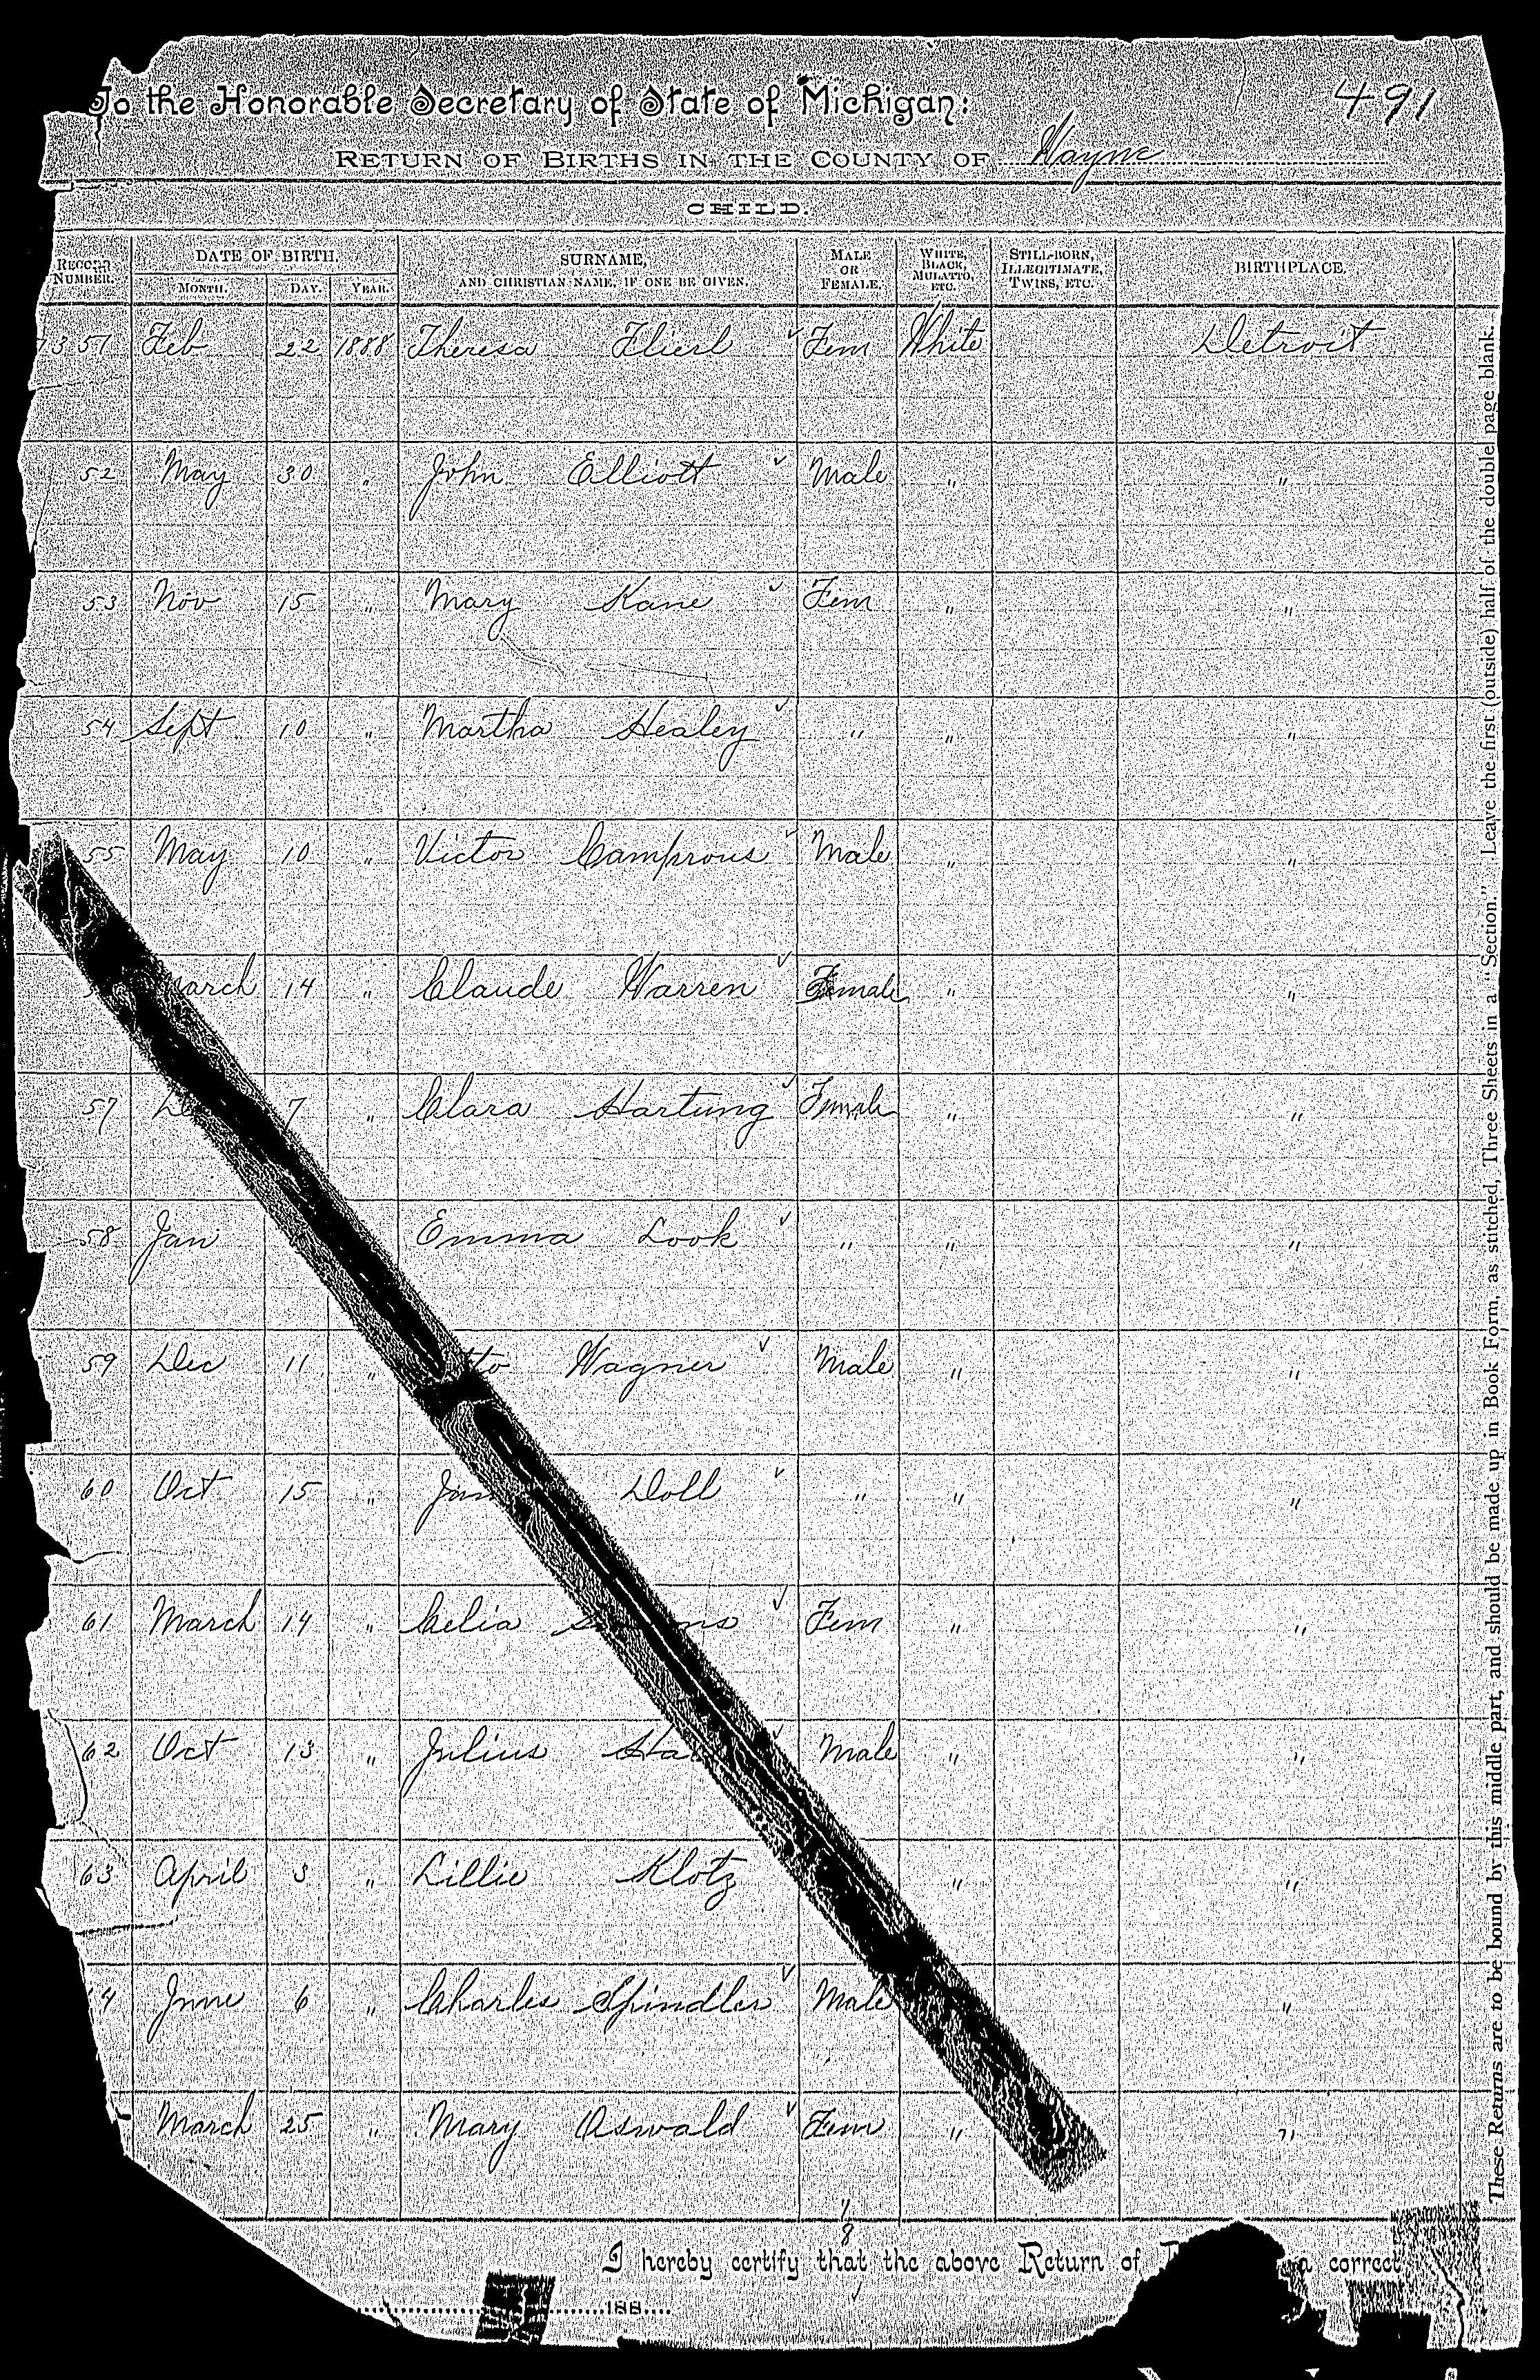 To the Honorable Secretary of State of Michigan:
491
RETURN OF BIRTHS IN THE COUNTY OF Wayne
CHILD.
RECORD NUMBER. DATE OF BIRTH. MONTH. DAY. YEAR. SURNAME, AND CHRISTIAN NAME, IF ONE BE GIVEN. MALE OR FEMALE. WHITE, BLACK, MULATTO, ETC. STILL-BORN, ILLEGITIMATE, TWINS, ETC. BIRTHPLACE.
7351 Feb 22 1888 Theresa Flierl ✓ Fem White Detroit
52 May 30 " John Elliott ✓ Male " "
53 Nov 15 " Mary Kane ✓ Fem " "
54 Sept 10 " Martha Healey ✓ " " "
55 May 10 " Victor Camprous ✓ Male " "
March 14 " Claude Warren ✓ Female " "
57 7 " Clara Hartung ✓ Female " "
58 Jan Emma Look ✓ " " "
59 Dec 11 " Wagner ✓ Male " "
60 Oct 15 " Doll ✓ " " "
61 March 14 " Celia ✓ Fem " "
62 Oct 13 " Julius ✓ Male " "
63 April 3 " Lillie Klotz " "
4 June 6 " Charles Spindler ✓ Male "
March 25 " Mary Oswald ✓ Fem " "
1
8
I hereby certify that the above Return of a correct
188
These Returns are to be bound by this middle part, and should be made up in Book Form, as stitched, Three Sheets in a "Section." Leave the first (outside) half of the double page blank.